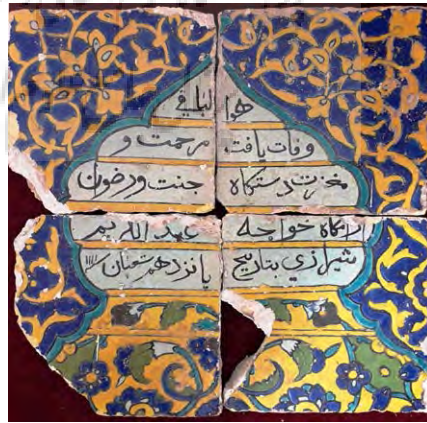 هو الباقي
وفات یافت مرحمت و
مغفرت دستگاه جنت و رضوان
ارامگاه خواجه عبدالله بم
شیرازي بتاریخ پانزدهم شعبان